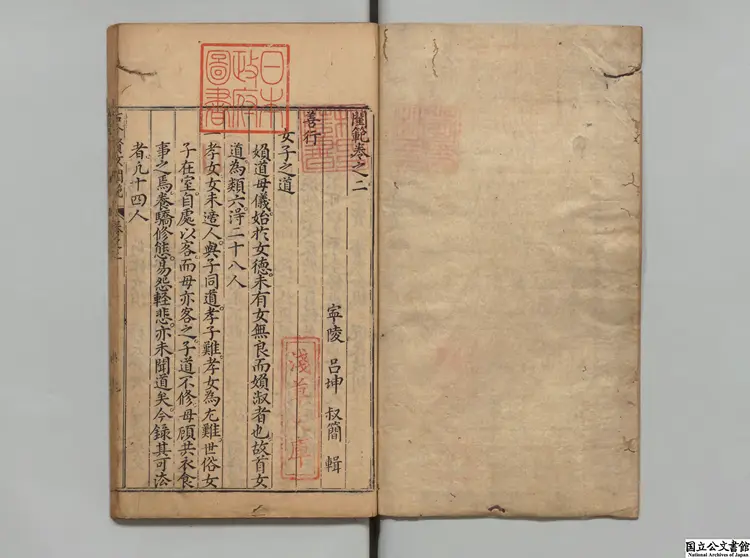 閨範卷之二
寧陵 呂坤 叔簡 輯
善行
女子之道
婦道母儀始於女德未有女無良而婦淑者也故首女
道為類六得二十八人
一孝女女未適人與子同道孝子難孝女為尤難世俗女
子在室自處以客而母亦客之子道不修母顧共衣食
事之焉養驕修態易怨輕悲亦未聞道矣今錄其可法
者凡十四人
日本政府圖書
淺草文庫
国立公文書館
National Archives of Japan